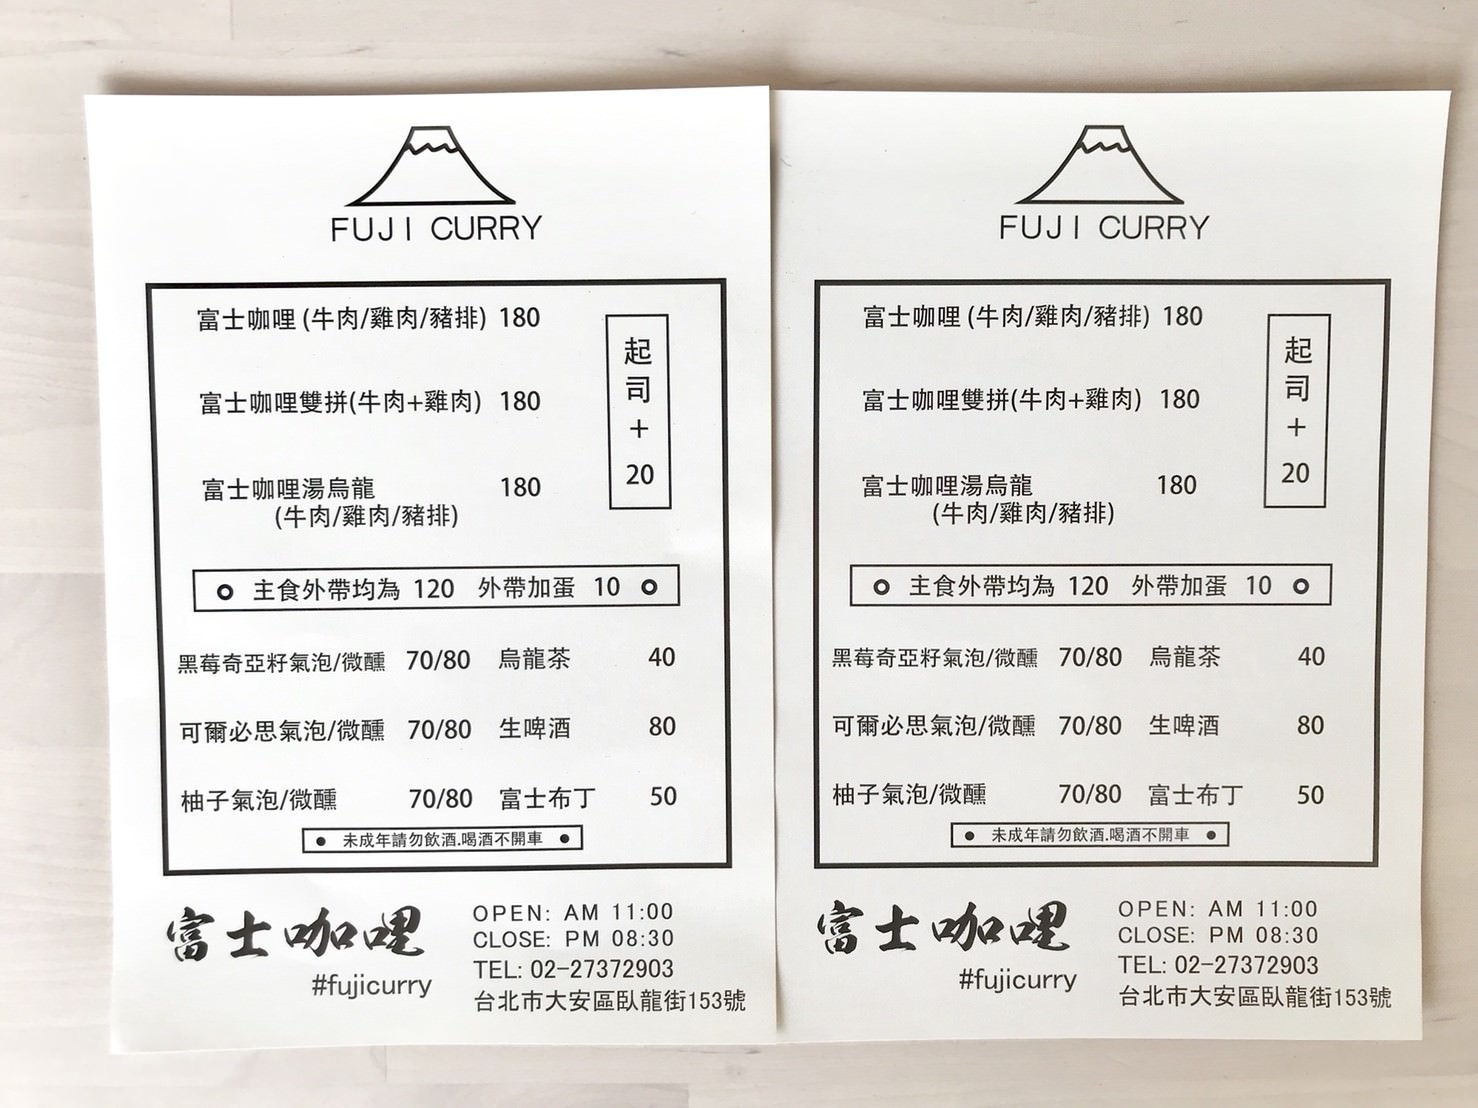 FUJI CURRY
富士咖哩 (牛肉/雞肉/豬排) 180
富士咖哩雙拼(牛肉+雞肉) 180
富士咖哩湯烏龍 180
(牛肉/雞肉/豬排)
起司+20
主食外帶均為 120 外帶加蛋 10
黑莓奇亞籽氣泡/微醺 70/80 烏龍茶 40
可爾必思氣泡/微醺 70/80 生啤酒 80
柚子氣泡/微醺 70/80 富士布丁 50
未成年請勿飲酒.喝酒不開車
富士咖哩
#fujicurry
OPEN: AM 11:00
CLOSE: PM 08:30
TEL: 02-27372903
台北市大安區臥龍街153號
FUJI CURRY
富士咖哩 (牛肉/雞肉/豬排) 180
富士咖哩雙拼(牛肉+雞肉) 180
富士咖哩湯烏龍 180
(牛肉/雞肉/豬排)
起司+20
主食外帶均為 120 外帶加蛋 10
黑莓奇亞籽氣泡/微醺 70/80 烏龍茶 40
可爾必思氣泡/微醺 70/80 生啤酒 80
柚子氣泡/微醺 70/80 富士布丁 50
未成年請勿飲酒.喝酒不開車
富士咖哩
#fujicurry
OPEN: AM 11:00
CLOSE: PM 08:30
TEL: 02-27372903
台北市大安區臥龍街153號